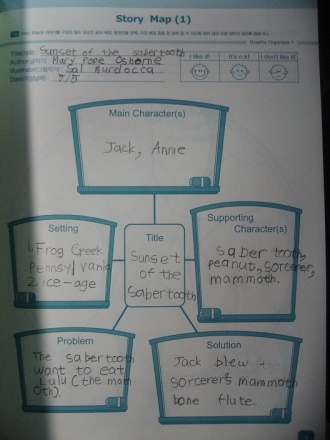 Story Map (1)
Graphic Organizer 1
Title(제목) Sunset of the sabertooth
Author(작가) Mary Pope Osborne
Illustrator(그림작가) Sal Murdocca
Date(작성일) 5/5
I like it! It's o.k! I don't like it!
Main Character(s)
Jack, Annie
Setting
1. Frog Creek
Pennsylvania
2. ice-age
Title
Sunset
of the
Sabertooth
Supporting
Character(s)
saber tooth,
peanut, sorcerer,
mammoth.
Problem
The sabertooth
want to eat
Lulu (the mam
oth).
Solution
Jack blew
sorcerer's mammoth
bone flute.